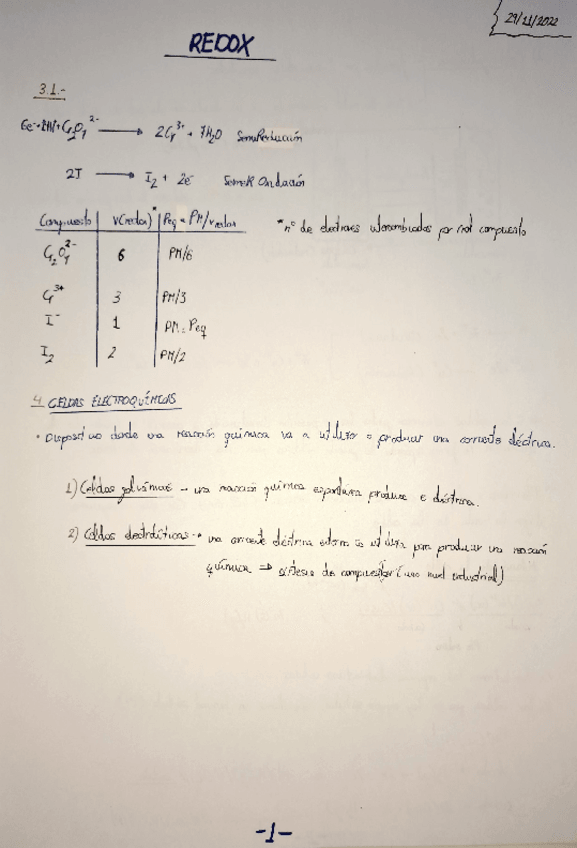 29/11/2022
REDOX
3.1.-
6e⁻+14H⁺+Cr₂O₇²⁻ → 2Cr³⁺ + 7H₂O Semireducción
2I → I₂ + 2e⁻ SemiR Oxidación
Compuesto | V(redox)* | Peq = PM/vredox *nº de electrones intercambiados por mol compuesto
Cr₂O₇²⁻ | 6 | PM/6
Cr³⁺ | 3 | PM/3
I⁻ | 1 | PM = Peq
I₂ | 2 | PM/2
4 CELDAS ELECTROQUÍMICAS
• Dispositivo donde una reacción química va a utilizar o producir una corriente eléctrica.
1) Celdas galvánicas → una reacción química espontánea produce e eléctrica.
2) Celdas electrolíticas → una corriente eléctrica externa se utiliza para producir una reacción
química ⇒ síntesis de compuestos (uso nivel industrial)
-1-